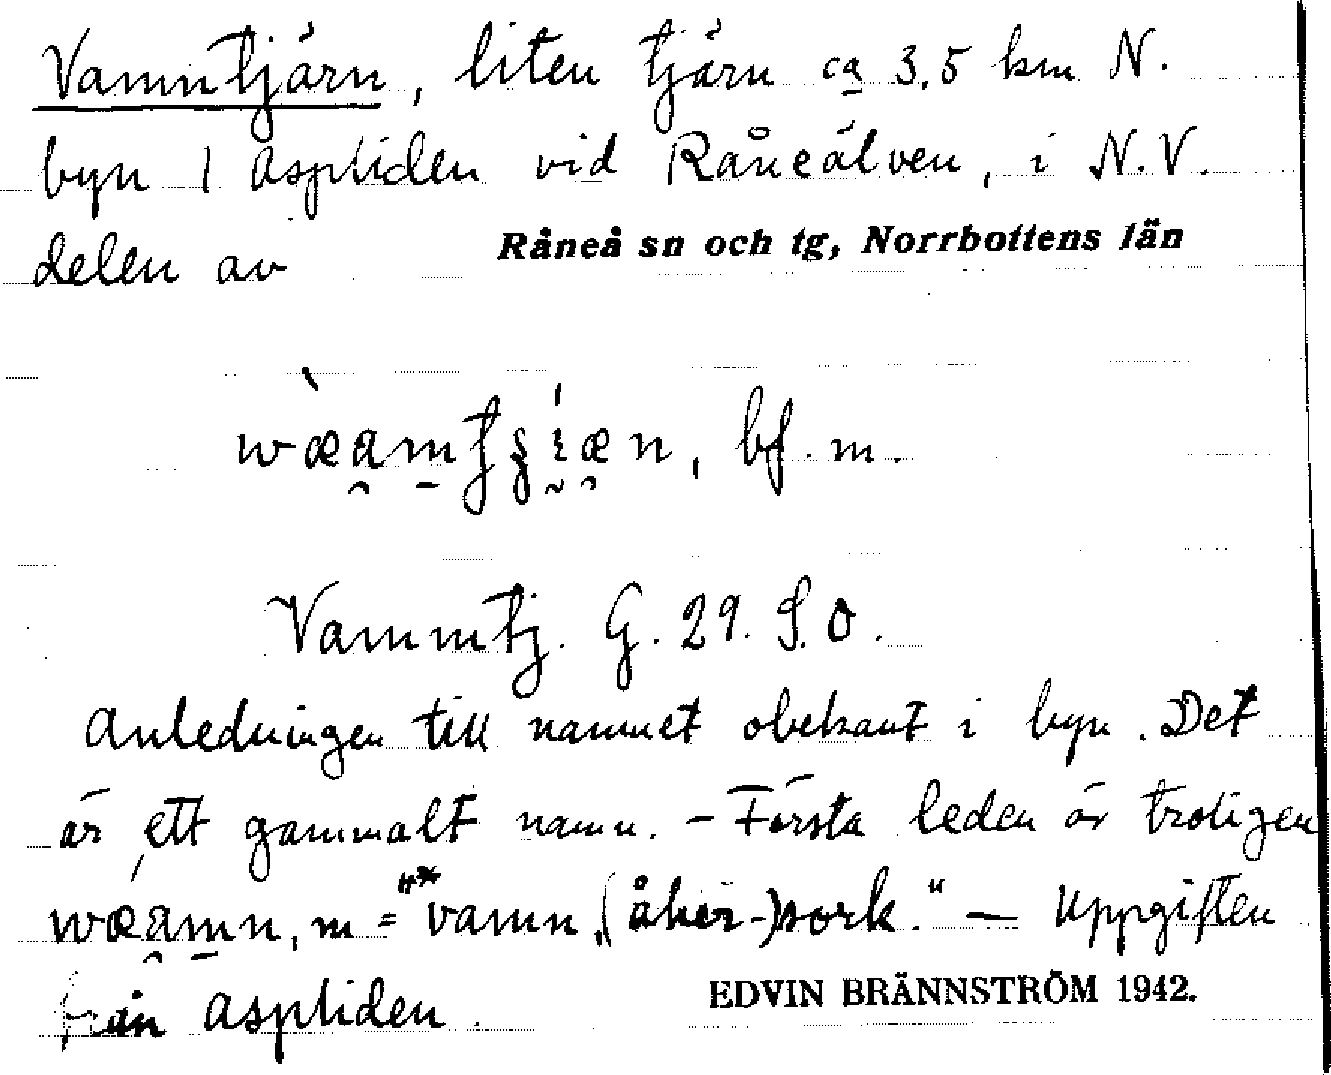 Vamntjärn, liten tjärn ca 3,5 km N.
byn 1 Aspliden vid Råneälven, i N.V.
delen av Råneå sn och tg, Norrbottens län
bf. m.
Vammtj. G. 29. S.O.
Anledningen till namnet obekant i byn. Det
är ett gammalt namn. – Första leden är troligen
m = "*vamn, (åker-)sork." — Uppgiften
från Aspliden.
EDVIN BRÄNNSTRÖM 1942.